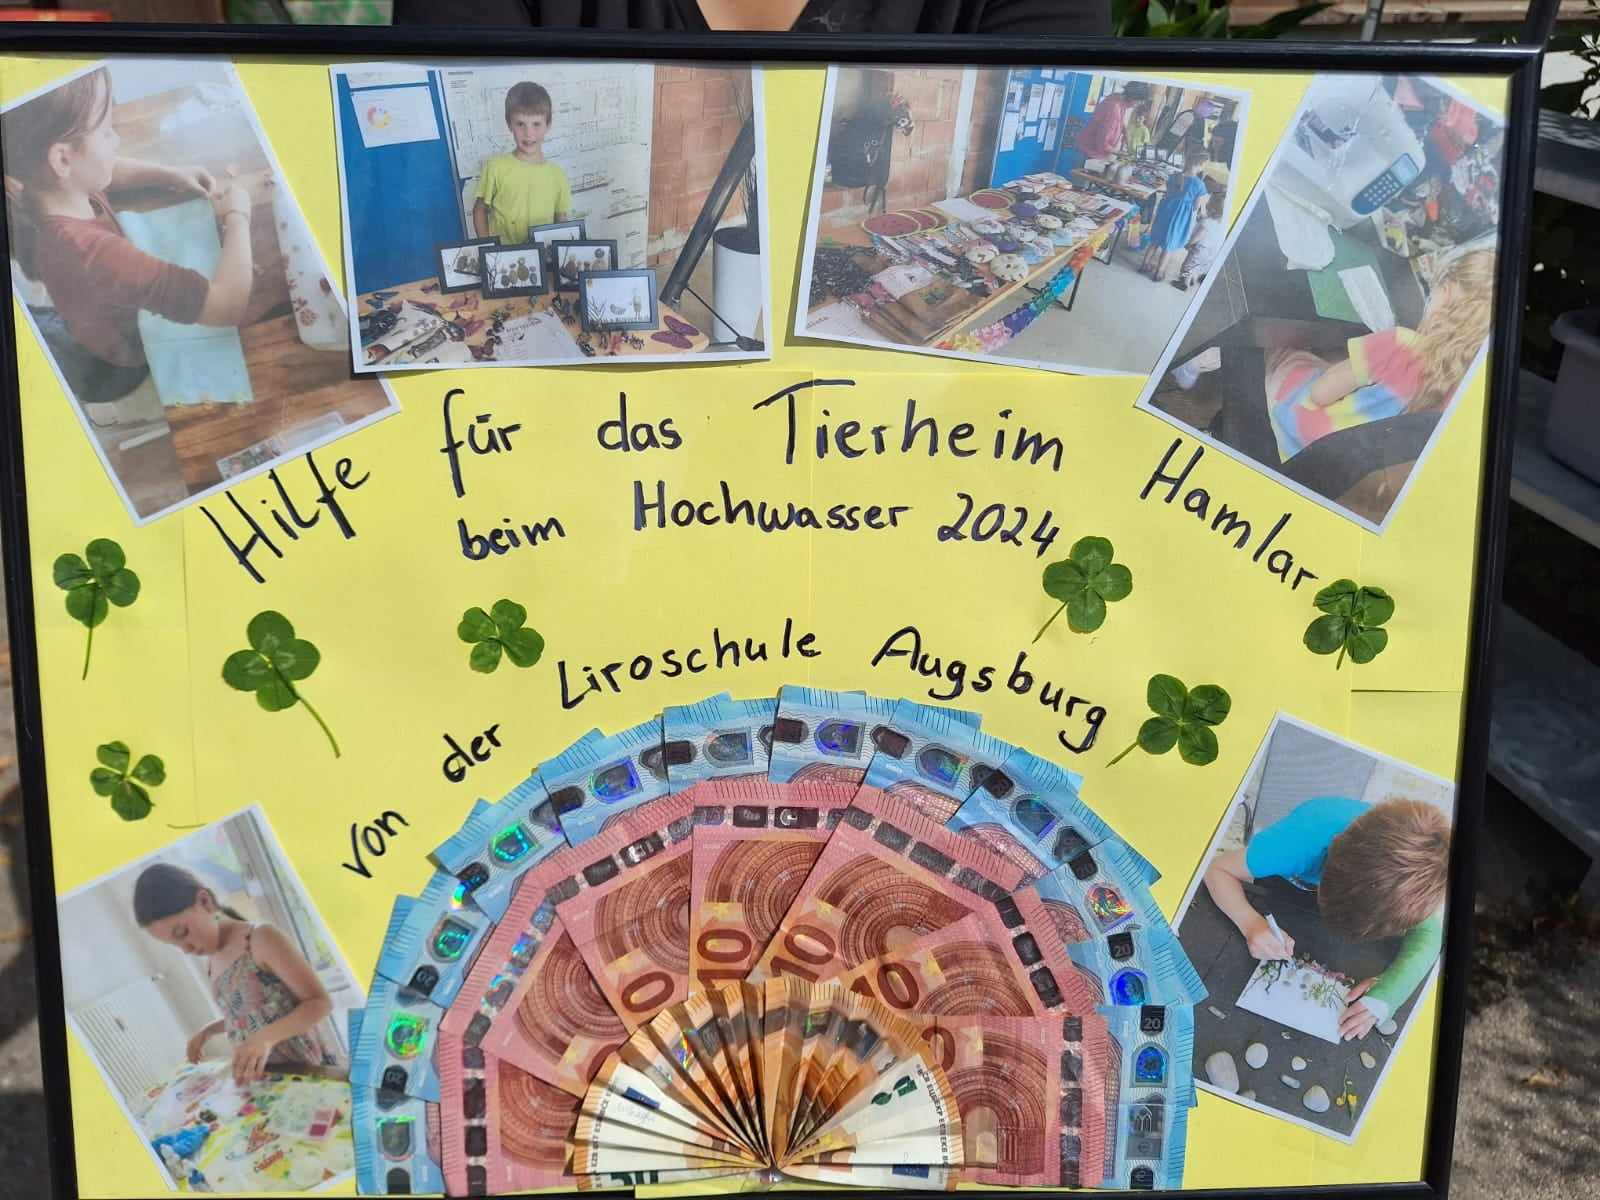 Hilfe für das Tierheim Hamlar
beim Hochwasser 2024
von der Liroschule Augsburg
10
10
10
20
20